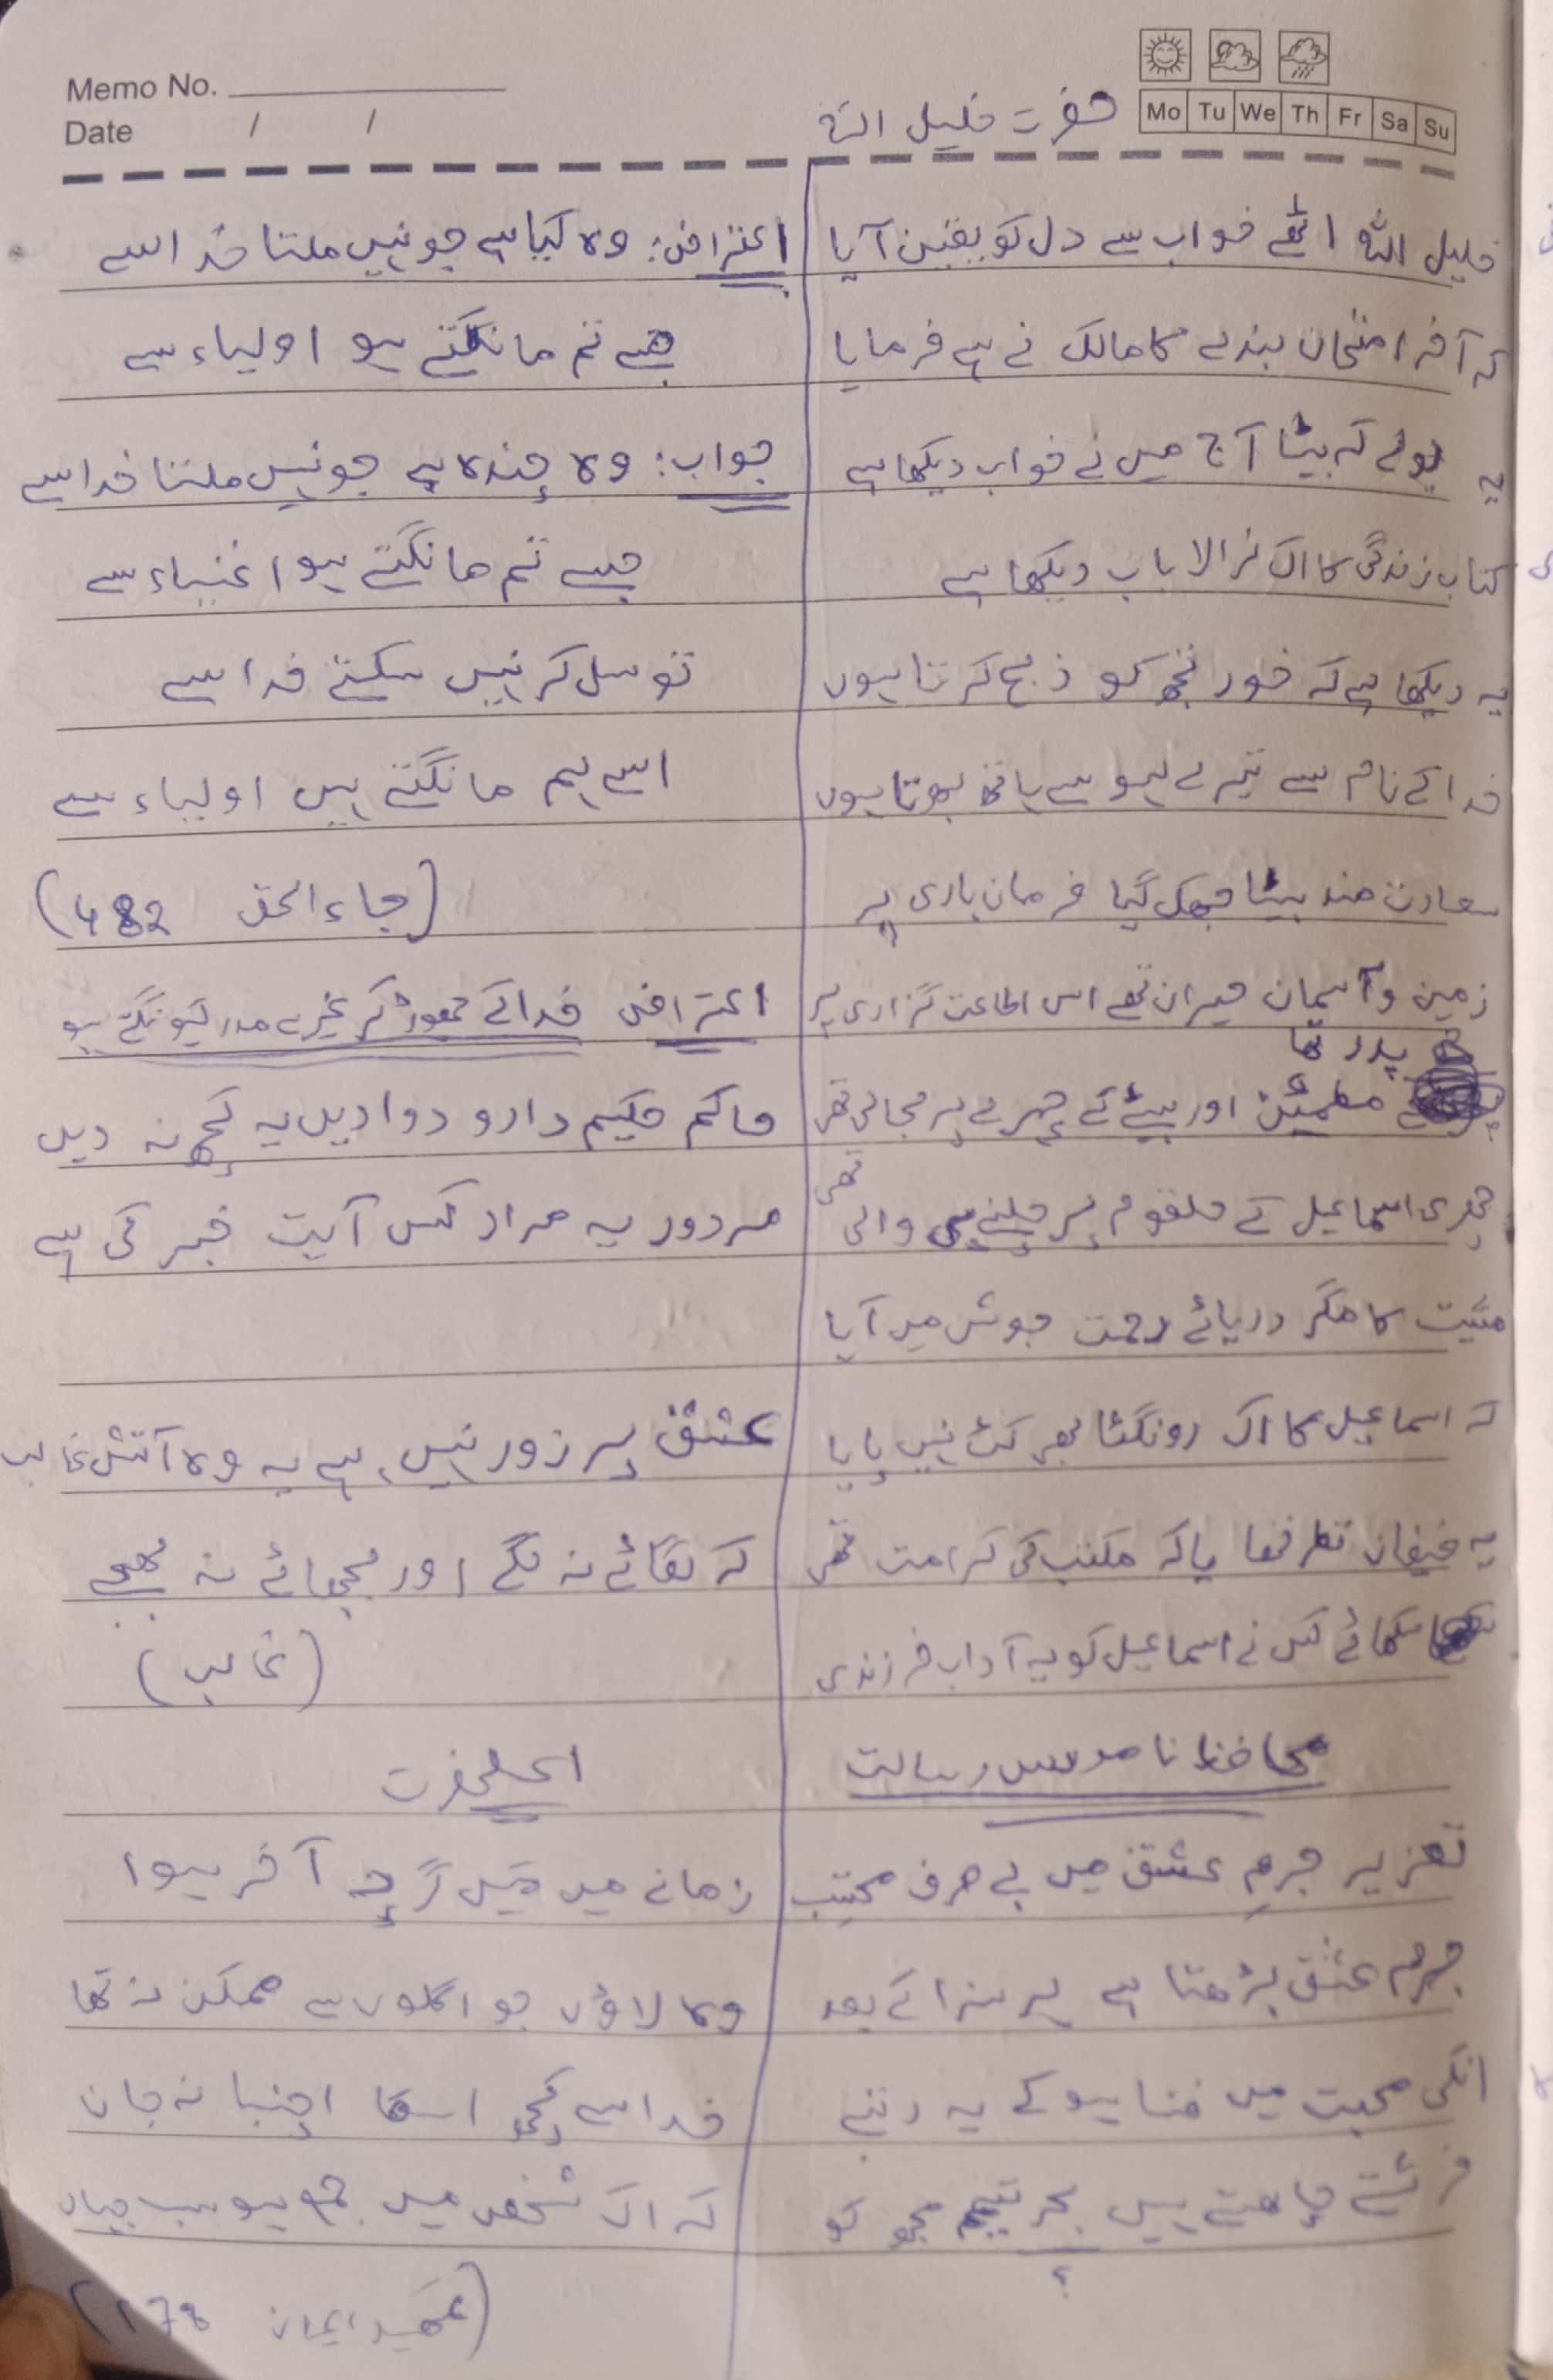 Memo No.
Date / /
Mo Tu We Th Fr Sa Su
حضرت خلیل اللہ
خلیل اللہ اٹھے خواب سے دل کو یقین آیا
کہ آخر امتحان بندے کا مالک نے ہے فرمایا
یہ بولے کہ بیٹا آج میں نے خواب دیکھا ہے
کتاب زندگی کا اک نرالا باب دیکھا ہے
یہ دیکھا ہے کہ خود تجھ کو ذبح کرتا ہوں
خدا کے نام سے تیرے لہو سے ہاتھ بھرتا ہوں
سعادت مند بیٹا جھک گیا فرمان باری پر
زمین و آسمان حیران تھے اس اطاعت گزاری پر
پدر تھا
مطمئن اور بیٹے کے چہرے پر بحالی تھی
چھری اسماعیل کے حلقوم پر چلنے ہی والی تھی
مشیت کا مگر دریائے رحمت جوش میں آیا
کہ اسماعیل کا اک رونگٹا بھی کٹ نہیں پایا
یہ فیضان نظر تھا یا کہ مکتب کی کرامت تھی
سکھائے کس نے اسماعیل کو یہ آداب فرزندی
محافظ ناموس رسالت
تعزیر جرم عشق میں بے صرفہ محتسب
جرم عشق بڑھتا ہے پر سزا کے بعد
انکی محبت میں فنا ہو کے یہ رتبے
فرشتے چاہتے ہیں مجھ کو
؟
اعتراض: وہ کیا ہے جو نہیں ملتا خدا سے
جسے تم مانگتے ہو اولیاء سے
جواب: وہ چندہ ہے جو نہیں ملتا خدا سے
جسے تم مانگتے ہو اغنیاء سے
توسل کر نہیں سکتے خدا سے
اسے ہم مانگتے ہیں اولیاء سے
(جاء الحق 482)
اعتراض خدا کے چھوڑ کر غیر سے مدد کیوں مانگتے ہو
حاکم حکیم دارو دوا دیں یہ کچھ نہ دیں
مردود یہ مراد کس آیت خبر کی ہے
عشق پر زور نہیں ہے یہ وہ آتش غالب
کہ لگائے نہ لگے اور بجھائے نہ بجھے
(غالب)
اعلحضرت
زمانے میں میں گرچہ آخر ہوا
وہ لاؤں جو اگلوں سے ممکن نہ تھا
خدا سے کچھ اسکا اچنبا نہ جان
کہ اک شخص میں جمع ہو سب جہاں
(تمہید ایمان 178)